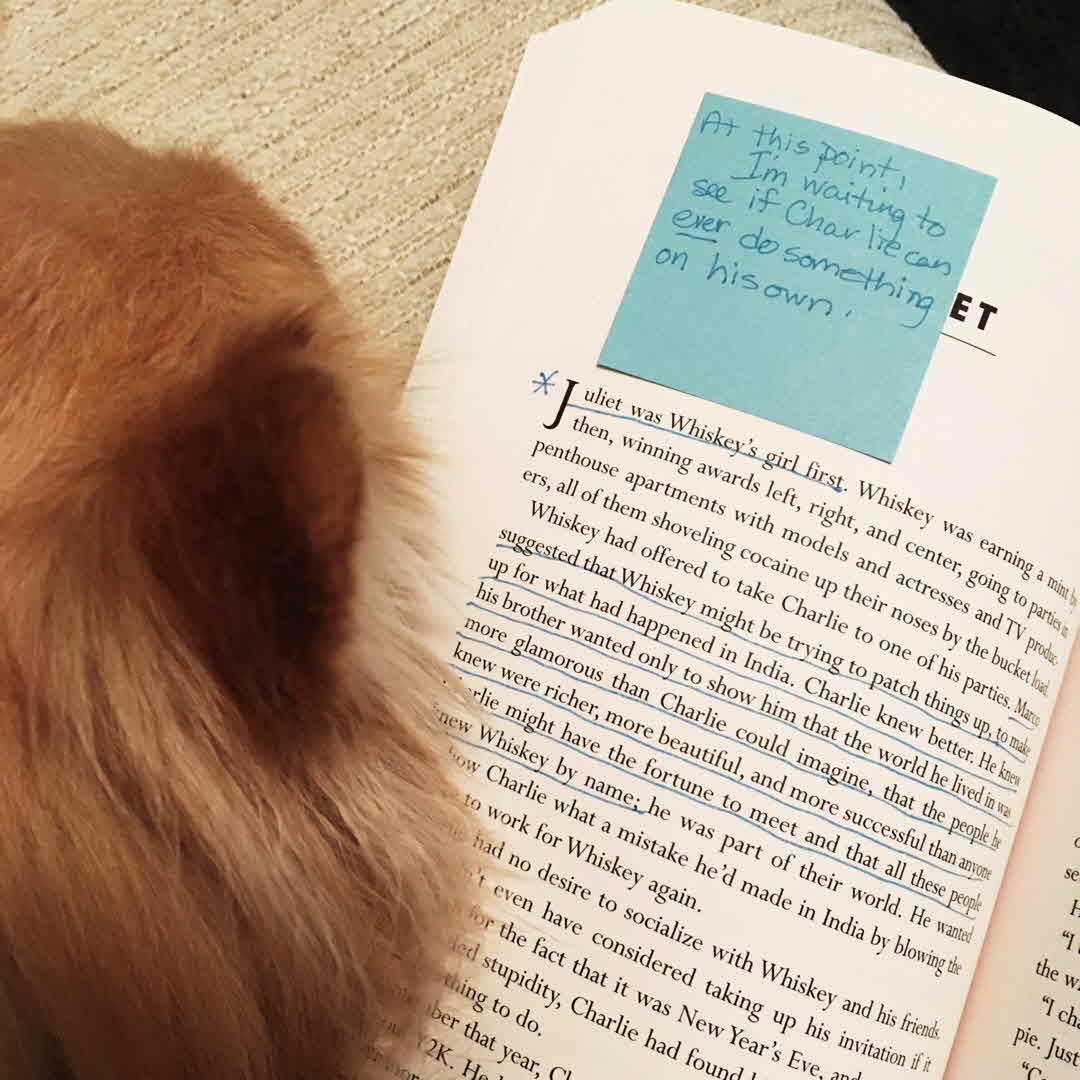 At this point,
I'm waiting to
see if Charlie can
ever do something
on his own.
ET
* Juliet was Whiskey's girl first. Whiskey was earning a mint by
then, winning awards left, right, and center, going to parties in
penthouse apartments with models and actresses and TV produc-
ers, all of them shoveling cocaine up their noses by the bucket load.
Whiskey had offered to take Charlie to one of his parties. Marco
suggested that Whiskey might be trying to patch things up, to make
up for what had happened in India. Charlie knew better. He knew
his brother wanted only to show him that the world he lived in was
more glamorous than Charlie could imagine, that the people he
knew were richer, more beautiful, and more successful than anyone
arlie might have the fortune to meet and that all these people
new Whiskey by name; he was part of their world. He wanted
how Charlie what a mistake he'd made in India by blowing the
to work for Whiskey again.
had no desire to socialize with Whiskey and his friends.
't even have considered taking up his invitation if it
for the fact that it was New Year's Eve, and
ied stupidity, Charlie had found
thing to do.
ber that year,
Y2K. He
"I
the w
"I cha
pie. Just